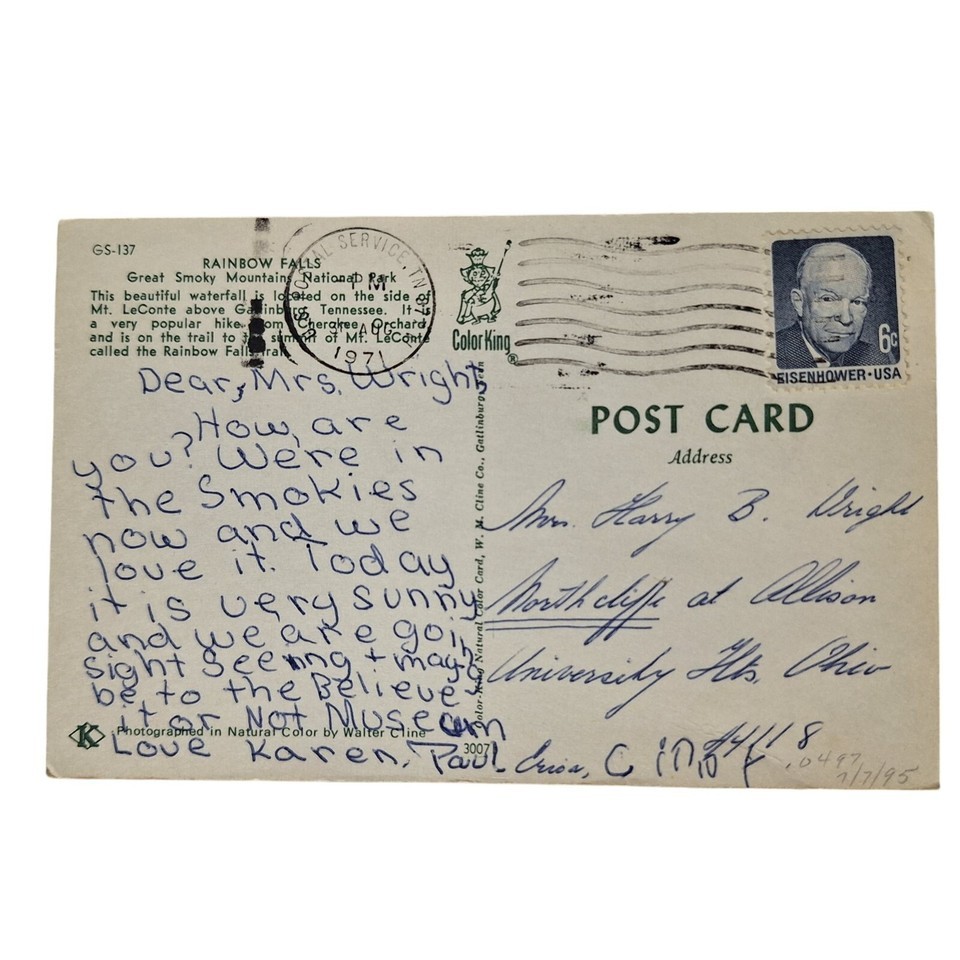 GS-137
RAINBOW FALLS
Great Smoky Mountains National Park
This beautiful waterfall is located on the side of
Mt. LeConte above Gatlinburg, Tennessee. It is
a very popular hike from Cherokee Orchard
and is on the trail to the summit of Mt. LeConte
called the Rainbow Falls Trail.
POSTAL SERVICE, TN
PM
AUG
1971
Color King
®
6c
EISENHOWER·USA
Dear, Mrs. Wright
How are
you? Were in
the Smokies
now and we
love it. Today
it is very sunny
and we are goin
sight seeing + mayb
be to the Believe
it or Not Museum
Love Karen, Paul Erica, Cindy
K
Photographed in Natural Color by Walter Cline
30071
Color-King Natural Color Card, W. M. Cline Co., Gatlinburg, Tenn
POST CARD
Address
Mrs. Harry B. Wright
Northcliffe at Allison
University Hts. Ohio
44118
.0497
7/7/95